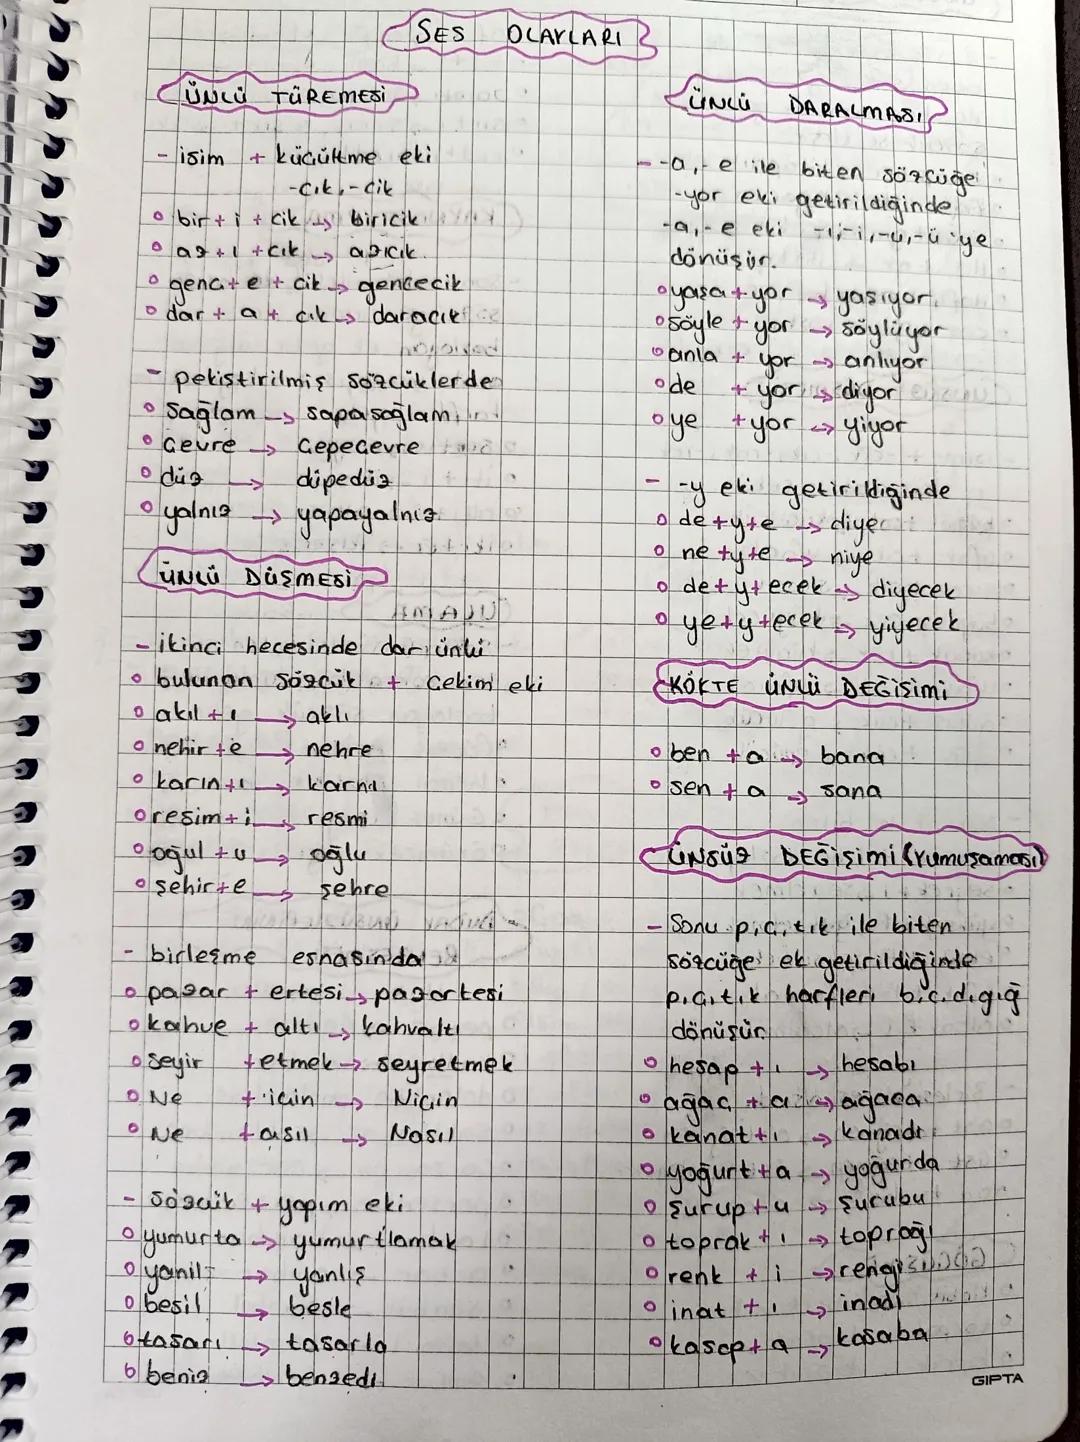 SES OLAYLARI
ÜNLÜ TÜREMESİ
- isim + küçültme eki
-cık,-cik
bir + i + cik → biricik
az + ı + cık → azıcık
genç + e + cik → gencecik
dar + a + cık → daracık
- pekiştirilmiş sözcüklerde
sağlam → sapasağlam
çevre → çepeçevre
düz → düpedüz
yalnız → yapayalnız
ÜNLÜ DÜŞMESİ
- ikinci hecesinde dar ünlü
bulunan sözcük + çekim eki
akıl + ı → aklı
nehir + e → nehre
karın + ı → karnı
resim + i → resmi
oğul + u → oğlu
şehir + e → şehre
- birleşme esnasında
pazar + ertesi → pazartesi
kahve + altı → kahvaltı
seyir + etmek → seyretmek
Ne + için → Niçin
Ne + asıl → Nasıl
- sözcük + yapım eki
yumurta → yumurtlamak
yanıl → yanlış
besil → besle
tasarı → tasarla
beniz → benzedi
ÜNLÜ DARALMASI
- -a,-e ile biten sözcüğe
-yor eki getirildiğinde
-a,-e eki -ı,-i,-u,-ü 'ye
dönüşür.
yaşa + yor → yaşıyor
söyle + yor → söylüyor
anla + yor → anlıyor
de + yor → diyor
ye + yor → yiyor
- -y eki getirildiğinde
de + y + e → diye
ne + y + e → niye
de + y + ecek → diyecek
ye + y + ecek → yiyecek
KÖKTE ÜNLÜ DEĞİŞİMİ
ben + a → bana
sen + a → sana
ÜNSÜZ DEĞİŞİMİ (Yumuşaması)
- Sonu p,ç,t,k ile biten
sözcüğe ek getirildiğinde
p,ç,t,k harfleri b,c,d,g,ğ
dönüşür.
hesap + ı → hesabı
ağaç + a → ağaca
kanat + ı → kanadı
yoğurt + a → yoğurda
şurup + u → şurubu
toprak + ı → toprağı
renk + i → rengi
inat + ı → inadı
kasap + a → kasaba
GIPTA